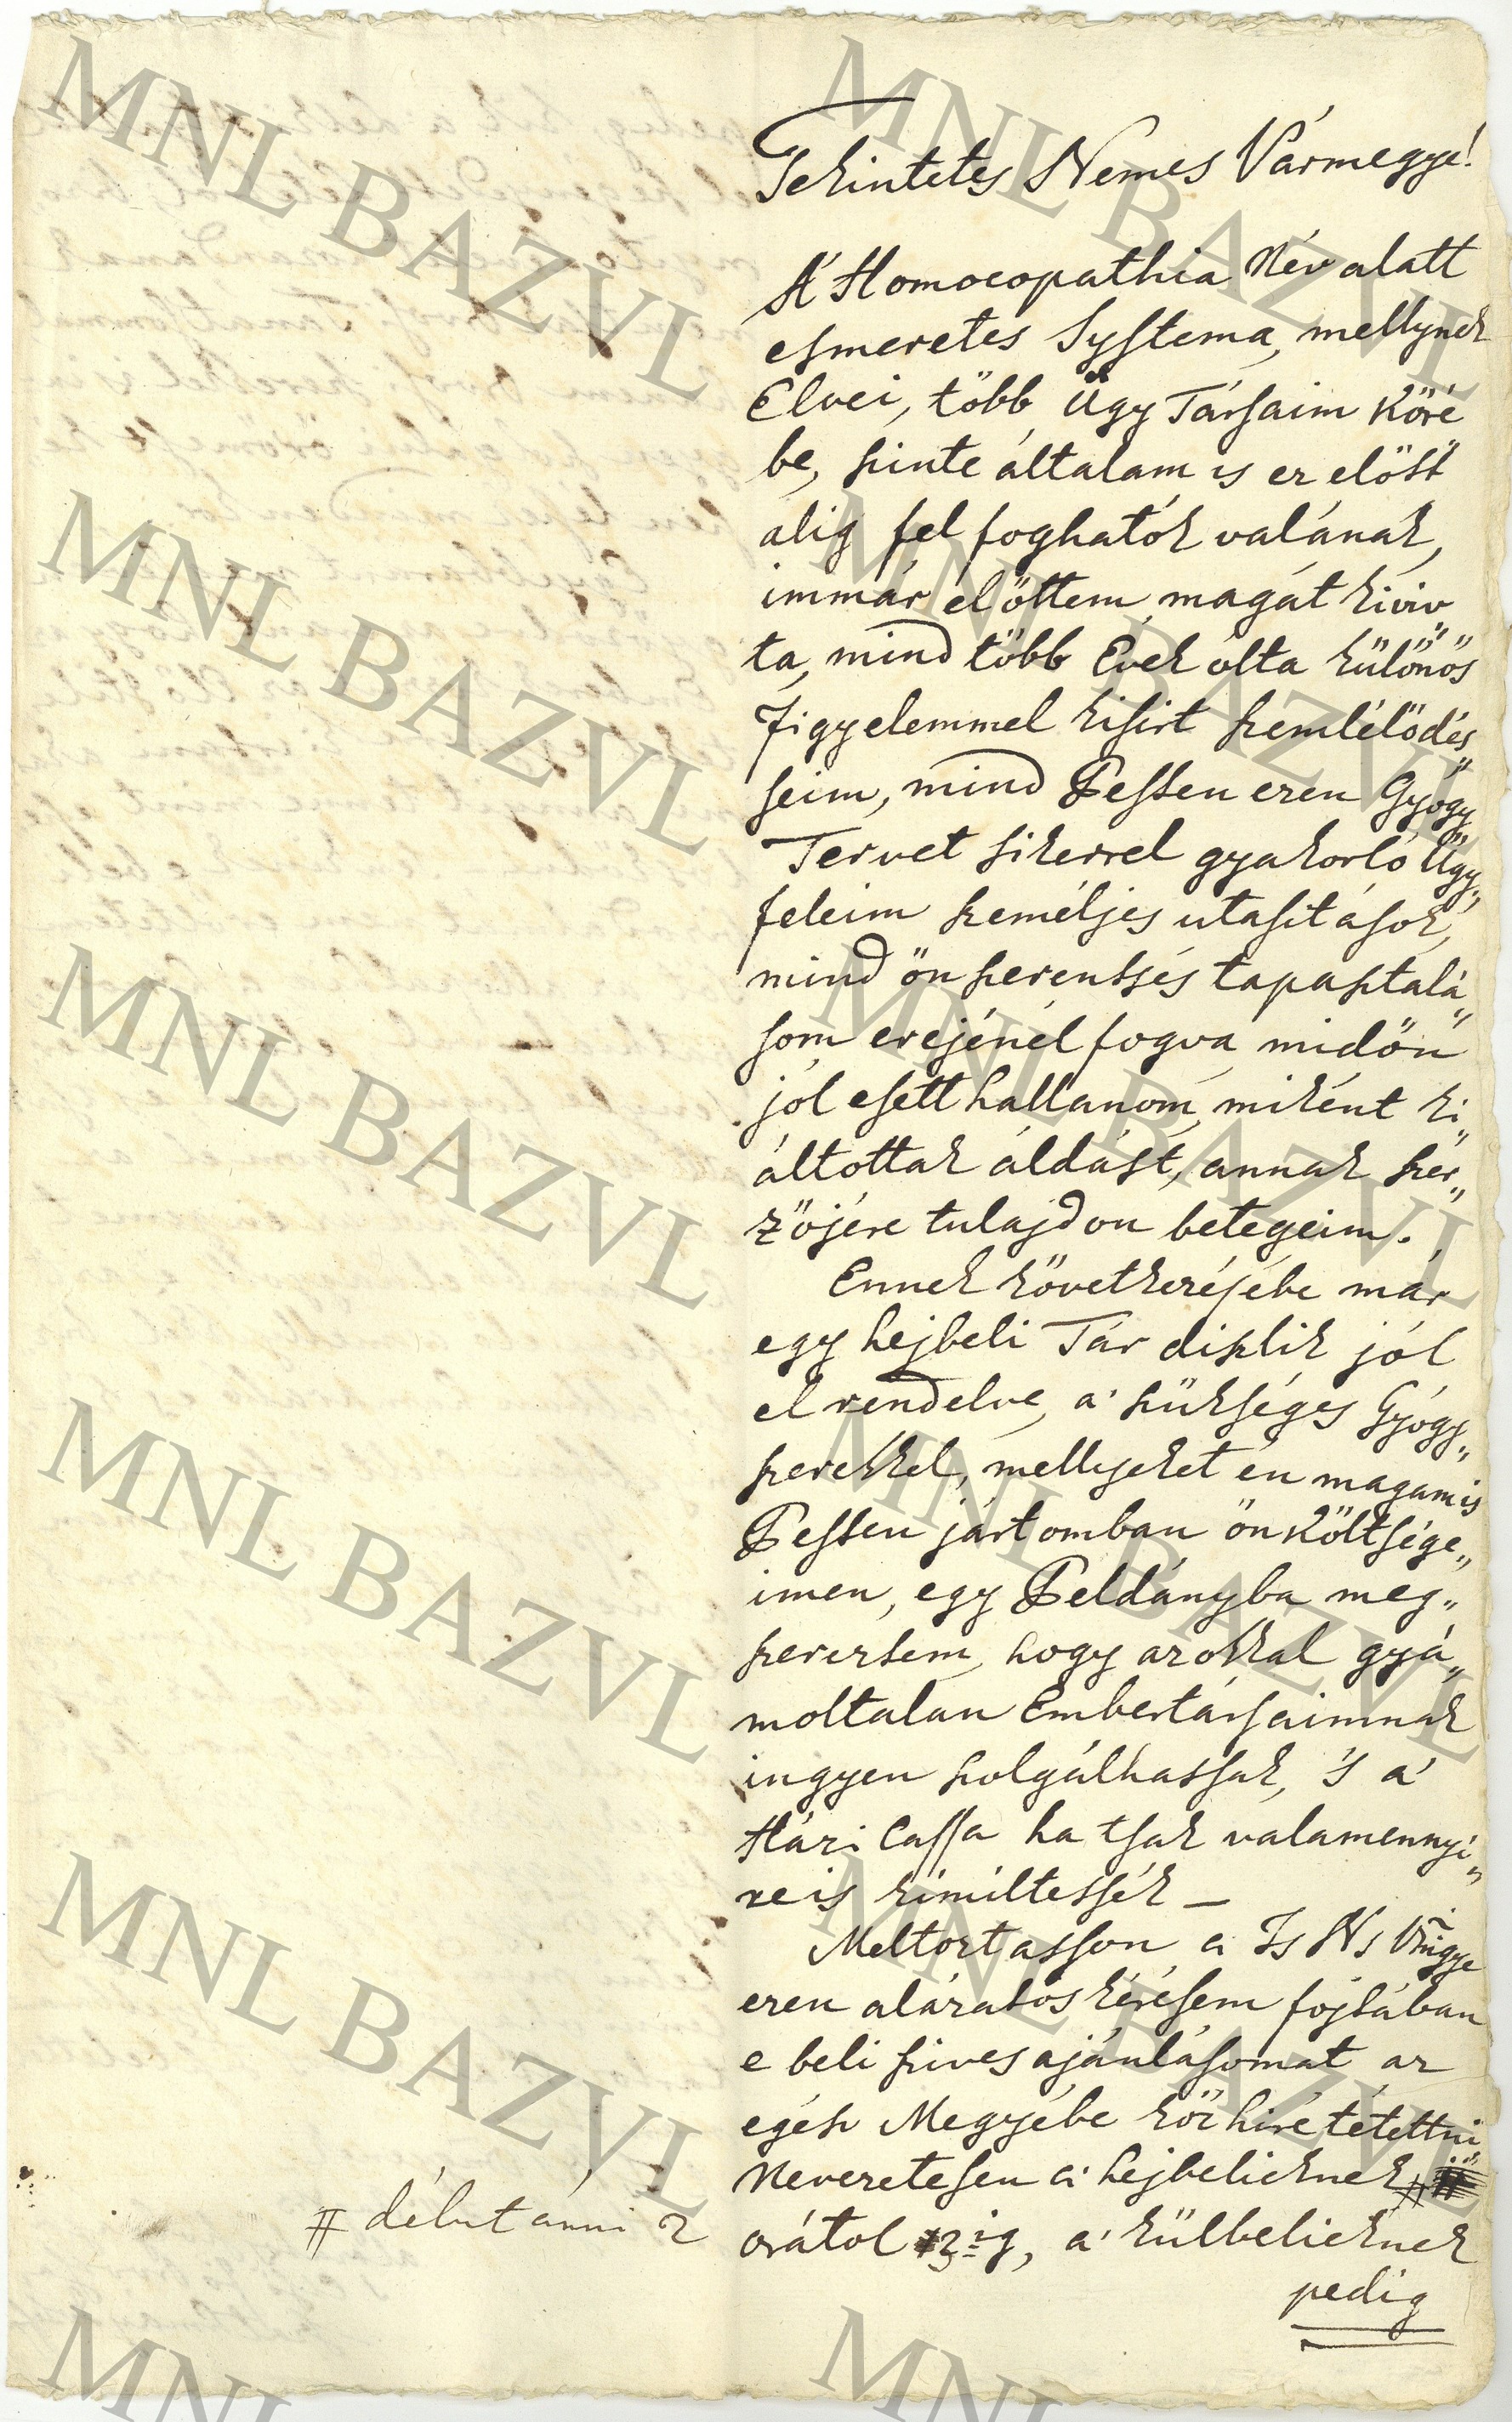 Tekintetes Nemes Vármegye!
A' Homoeopathia Név alatt
esmeretes Systema, mellynek
Elvei, több Ügy Társaim köré
be, szinte általam is ez elött
alig fel foghatók valának,
immár elöttem magát kiviv
ta, mind több Évek ólta külön̈ös
figyelemmel kisirt szemlélödés„
seim, mind Pesten ezen Gyógy
Tervet sikerrel gyakorló Ügy„
feleim személjes utasitások,
mind ön szerentsés tapasztalá„
som erejénél fogva midön
jól esett hallanom, miként ki„
áltottak áldást, annak szer„
zöjére tulajdon betegeim.
Ennek következésébe már
egy hejbeli Tár diszlik jól
el rendelve, a' szükséges Gyógy„
szerekkel, mellyeket én magam is
Pesten jártomban ön költsége„
imen, egy Peldányba meg„
szereztem, hogy azokkal gyá„
moltalan Embertársaimnak
ingyen szolgálhassak, 's a'
Házi Cassa ha tsak valamennyi„
re is kiméltessék —
Meltoztasson a Ts Ns Vmgye
ezen alázatos kérésem fojtában
e beli szives ajánlásomat az
egész Megyébe köz hiré tétettni
Nevezetesen a' hejbelieknek #
# délutánni 2
orátol 3ig, a' külbelieknek
pedig
MNL BAZVL